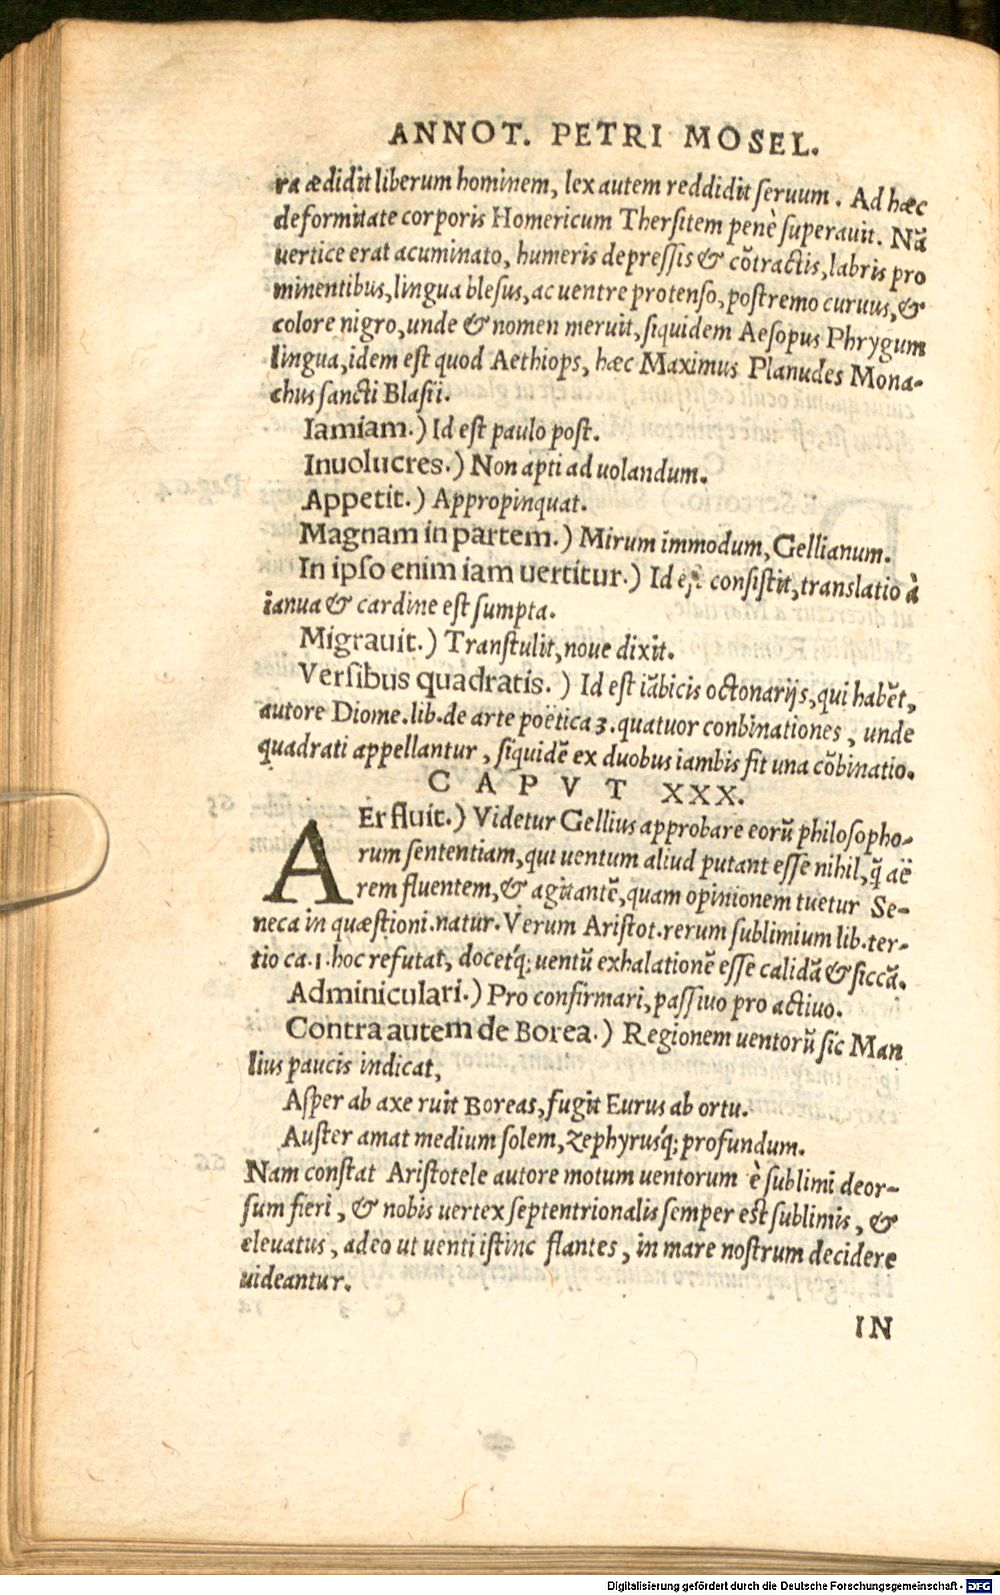 ANNOT. PETRI MOSEL.
ra ædidit liberum hominem, lex autem reddidit ſeruum. Ad hæc
deformitate corporis Homericum Therſitem penè ſuperauit. Nã
uertice erat acuminato, humeris depreſſis & cõtractis, labris pro
minentibus, lingua blesus, ac uentre protenſo, poſtremo curuus, &
colore nigro, unde & nomen meruit, ſiquidem Aeſopus Phrygum
lingua, idem eſt quod Aethiops, hæc Maximus Planudes Mona-
chus ſancti Blaſii.
Iamiam.) Id eſt paulo poſt.
Inuolucres.) Non apti ad uolandum.
Appetit.) Appropinquat.
Magnam in partem.) Mirum immodum, Gellianum.
In ipſo enim iam uertitur.) Id eſt conſiſtit, translatio à
ianua & cardine eſt ſumpta.
Migrauit.) Tranſtulit, noue dixit.
Verſibus quadratis.) Id eſt iãbicis octonarijs, qui habẽt,
autore Diome. lib. de arte poëtica 3. quatuor conbinationes, unde
quadrati appellantur, ſiquidẽ ex duobus iambis fit una cõbinatio.
CAPVT XXX.
AEr fluit.) Videtur Gellius approbare eorũ philoſopho-
rum ſententiam, qui uentum aliud putant eſſe nihil, q̃ aë
rem fluentem, & agitantẽ, quam opinionem tuetur Se-
neca in quæſtioni. natur. Verum Ariſtot. rerum ſublimium lib. ter-
tio ca. 1. hoc refutat, docetq́; uentũ exhalationẽ eſſe calidã & ſiccã.
Adminiculari.) Pro confirmari, paſſiuo pro actiuo.
Contra autem de Borea.) Regionem uentorũ ſic Man
lius paucis indicat,
Aſper ab axe ruit Boreas, fugit Eurus ab ortu.
Auſter amat medium ſolem, Zephyrusq́; profundum.
Nam conſtat Ariſtotele autore motum uentorum è ſublimi deor-
ſum fieri, & nobis uertex ſeptentrionalis ſemper eſt ſublimis, &
eleuatus, adeo ut uenti iſtinc flantes, in mare noſtrum decidere
uideantur.
IN
Digitalisierung gefördert durch die Deutsche Forschungsgemeinschaft - DFG